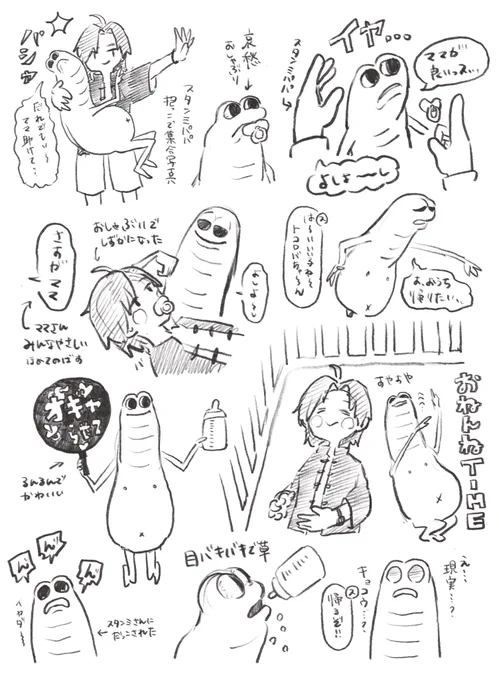 パシャ
だれでもい〜
ママ助けて…
スタンミパパ
抱っこで集合写真
哀愁
おしゃぶり
スタンミパパ
イヤ…
ママが
良いっス…
よしよ〜し
さすがママ
ママさん
みんなやさしい
ほめてのばす
おしゃぶりで
しずかになった
よしよし
ス
は〜いいい子ね〜
トコロバちゃ〜ん
お、おうち
帰りたい…
オギャ
らせて
るんるんで
かわいい
おやおや
おねんねTIME
んんん
スタンミさんに
だっこされた
目バキバキで草
ス
帰るぞ…
キョロウ…?
え…
現実…?